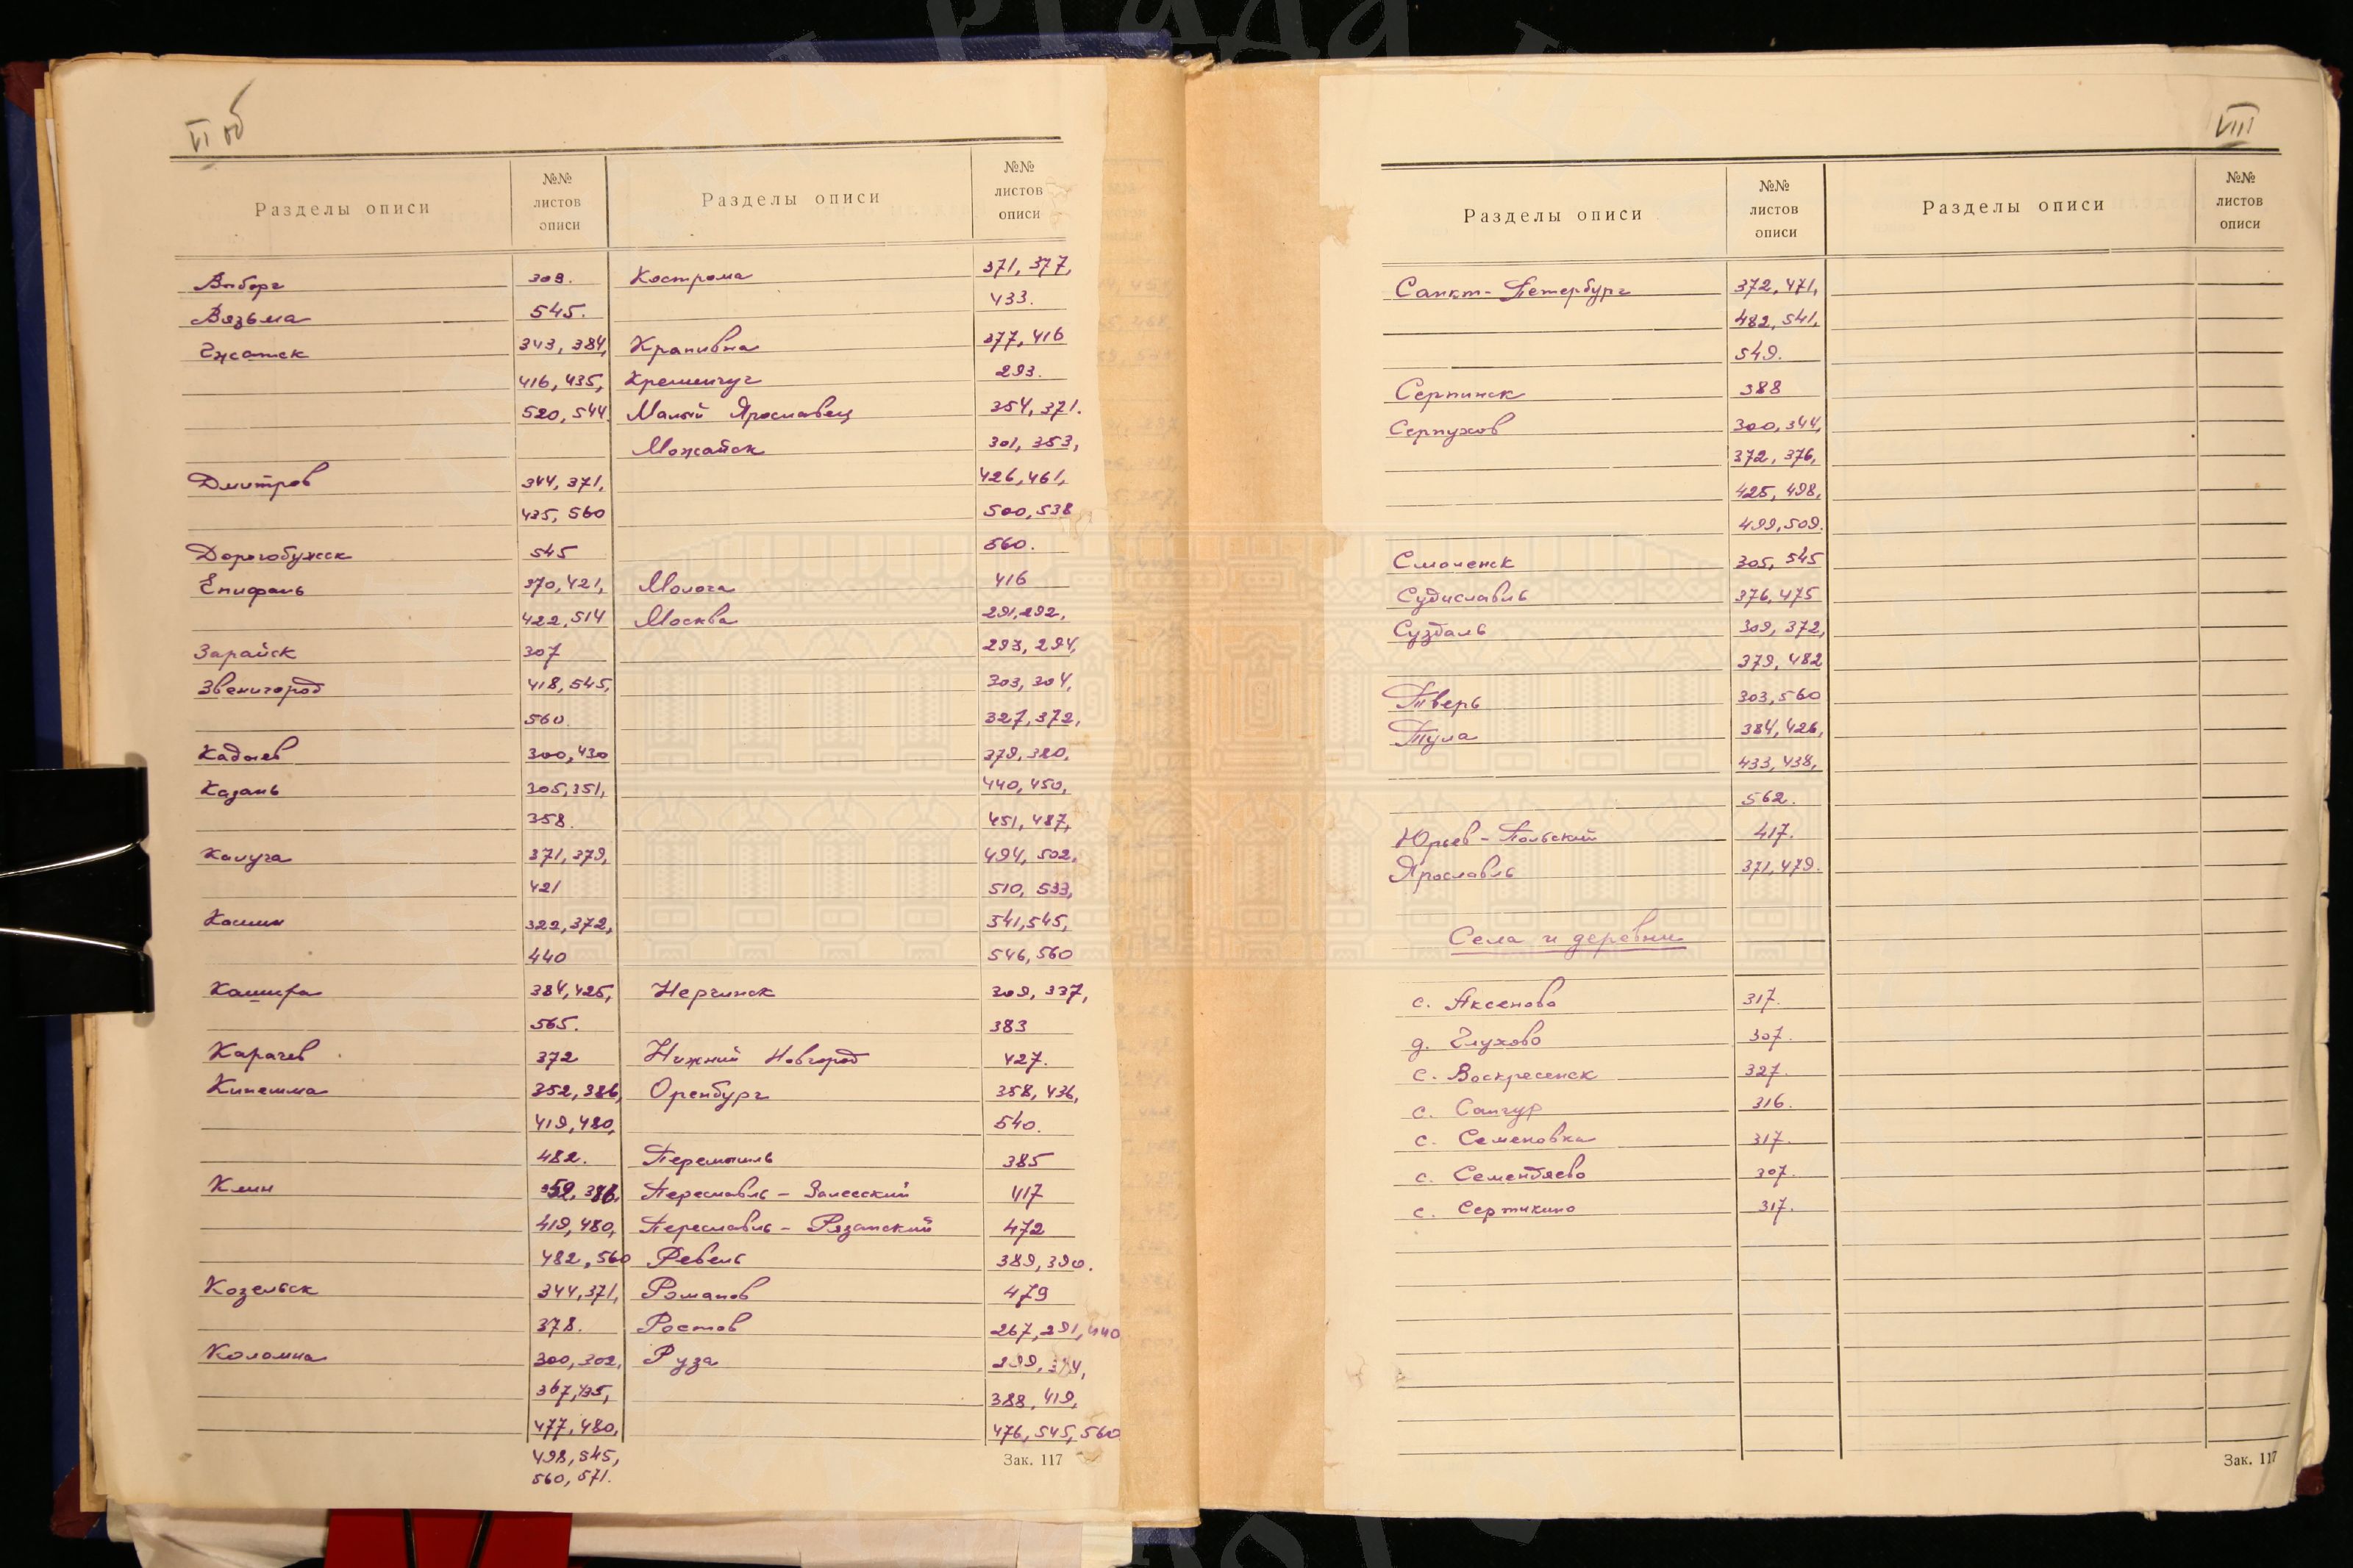 VI об
Разделы описи
№№
листов
описи
Выборг 303.
Вязьма 545.
Гжатск 343, 384,
416, 435,
520, 544.
Дмитров 344, 371,
435, 560
Дорогобужск 545
Епифань 370, 421,
422, 514
Зарайск 307
Звенигород 418, 545,
560.
Кадыев 300, 430
Казань 305, 351,
358.
Калуга 371, 379,
421
Кашин 322, 372,
440
Кашира 384, 425,
565.
Карачев 372
Кинешма 352, 386,
419, 480,
482.
Клин 386,
419, 480,
482, 560
Козельск 344, 371,
378.
Коломна 300, 302,
367, 435,
477, 480,
498, 545,
560, 571.
Разделы описи
№№
листов
описи
Кострома 371, 377,
433.
Крапивна 377, 416
Кременчуг 293.
Малый Ярославец 354, 371.
Можайск 301, 353,
426, 461,
500, 538
560.
Молога 416
Москва 291, 292,
293, 294,
303, 304,
327, 372,
379, 380,
440, 450,
451, 487,
494, 502,
510, 533,
541, 545,
546, 560
Нерчинск 309, 337,
383
Нижний Новгород 427.
Оренбург 358, 436,
540.
Перемышль 385
Переславль - Залесский 417
Переславль - Рязанский 472
Ревель 389, 390.
Романов 479
Ростов 267, 291, 440
Руза 299,
388, 419,
476, 545, 560
Зак. 117
VIII
Разделы описи
№№
листов
описи
Разделы описи
№№
листов
описи
Санкт-Петербург 372, 471,
482, 541,
549.
Серпинск 388
Серпухов 300, 344,
372, 376,
425, 498,
499, 509.
Смоленск 305, 545
Судиславль 376, 475
Суздаль 309, 372,
379, 482
Тверь 303, 560
Тула 384, 426,
433, 438,
562.
Юрьев-Польский 417.
Ярославль 371, 479.
Села и деревни
с. Аксеново 317.
д. Глухово 307.
с. Воскресенск 327.
с. Сангур 316.
с. Семеновка 317.
с. Семендяево 307.
с. Сертикино 317.
Зак. 117